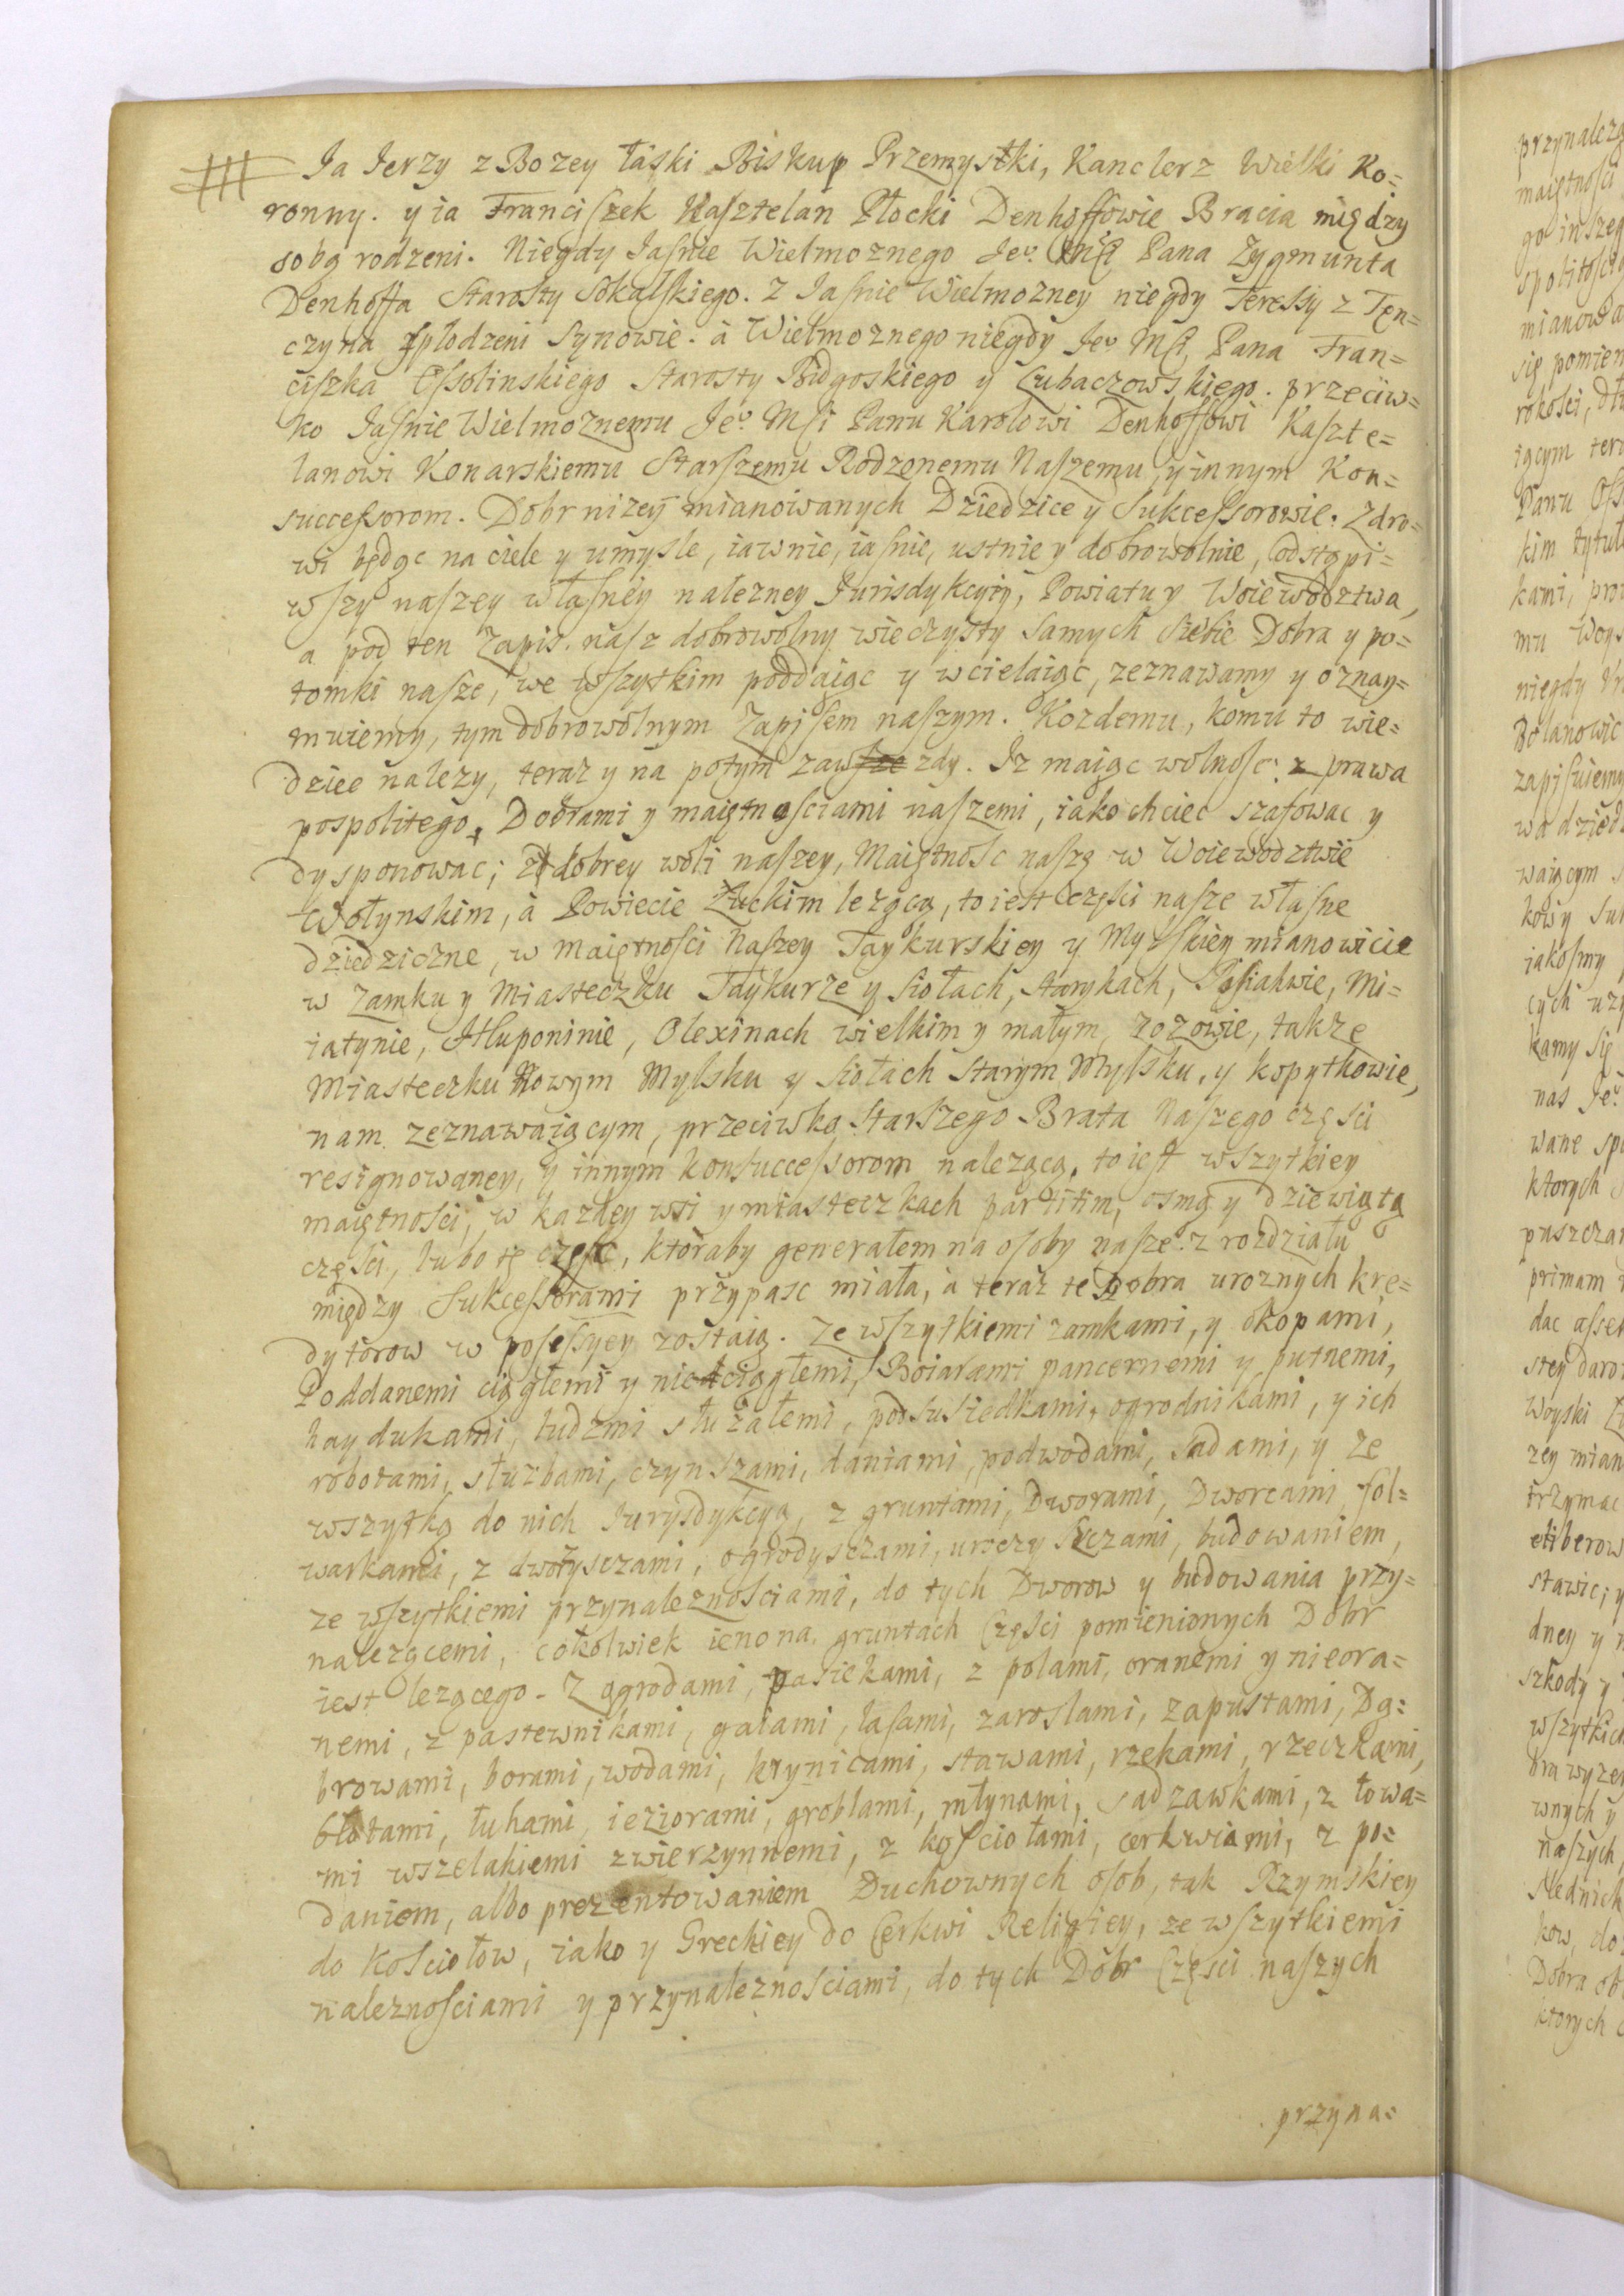 Ja Jerzy z Bozey łaski Biskup Przemyslki, Kanclerz Wielki Ko=
ronny. y ia Franciszek Kasztelan Płocki Denhoffowie Bracia między
sobą rodzeni. Niegdy Jasnie Wielmoznego Jeo Mści Pana Zygmunta
Denhoffa Starosty Sokalskiego. z Jasnie Wielmozney niegdy Teressy z Ten=
czyna spłodzeni Synowie. à Wielmoznego niegdy Jeo Mści Pana Fran=
ciszka Ossolinskiego Starosty Bidgoskiego y Lubaczowskiego. przeciw=
ko Jasnie Wielmoznemu Jeo Mści Panu Karolowi Denhoffowi Kaszte=
lanowi Konarskiemu Starszemu Rodzonemu Naszemu, y innym Kon=
successorom. Dobr nizey mianowanych Dziedzice y Sukcessorowie. Zdro=
wi będąc na ciele y umysle, iawnie, iasnie, ustnie y dobrowolnie, odstąpi=
wszy naszey własney nalezney Jurisdykcyiy, Powiatu y Woiewodztwa,
a pod ten Zapis nasz dobrowolny wieczysty samych siebie Dobra y po=
tomki nasze, we wszytkim poddaiąc y wcielaiąc, zeznawamy y oznay=
muiemy, tym dobrowolnym Zapisem naszym. Kozdemu, komu to wie=
dziec nalezy, teraz y na potym zawsze zdy. Iz maiąc wolnosc z prawa
pospolitego, Dobrami y maiętnosciami naszemi, iako chciec szafowac y
dysponowac; z dobrey woli naszey, Maiętnosc naszą w Woiewodztwie
Wołynskim, à Powiecie Łuckim lezącą, to iest częsci nasze własne
dziedziczne, w maiętnosci Naszey Taykurskiey y Mylskiey mianowicie
w Zamku y Miasteczku Taykurze y siołach, Asiahwie, Mi=
iatynie, Hłuponinie, Olexinach wielkim y małym, zozowie, takze
Miasteczku Nowym Mylsku y siołach starym Mylsku, y kopytkowie,
nam zeznawaiącym, przeciwko starszego Brata Naszego częsci
resignowaney, y innym konsuccessorom nalezącą, to iest wszytkiey
maiętnosci, w kazdey wsi y miasteczkach partitim, osmą y dziewiątą
częsci, lubo tę częsc, ktoraby generałem na osoby nasze z rozdziału
między Sukcessorami przypasc miała, à teraz te Dobra uroznych kre=
dytorow w posessyey zostaią. Ze wszytkiemi zamkami, y okopami,
Poddanemi ciągłemi y nieciągłemi, Boiarami pancernemi y putnemi,
haydukami, ludzmi słuzałemi, podsusiedkami, ogrodnikami, y ich
robotami, słuzbami, czynszami, daniami, podwodami, sadami, y ze
wszytką do nich Jurysdykcyą, z gruntami, Dworami, Dworcami, fol=
warkami, z dworysczami, ogrodysczami, uroczysczami, budowaniem,
ze wszytkiemi przynaleznosciami, do tych Dworow y budowania przy=
nalezącemi, cokolwiek ieno na gruntach Częsci pomienionych Dobr
iest lezącego. Z ogrodami, pasiekami, z polami, oranemi y nieora=
nemi, z pastewnikami, gaiami, łasami, zaroslami, zapustami, Dą=
browami, borami, wodami, krynicami, stawami, rzekami, rzeczkami,
błotami, łuhami, ieziorami, groblami, młynami, sadzawkami, z łowa=
mi wszelakiemi zwierzynnemi, z kosciołami, cerkwiami, z po=
daniem, albo prezentowaniem Duchownych osob, tak Rzymskiey
do Kosciołow, iako y Greckiey do Cerkwi Religiey, ze wszytkiemi
naleznosciami y przynaleznosciami, do tych Dobr Częsci naszych
przyna=